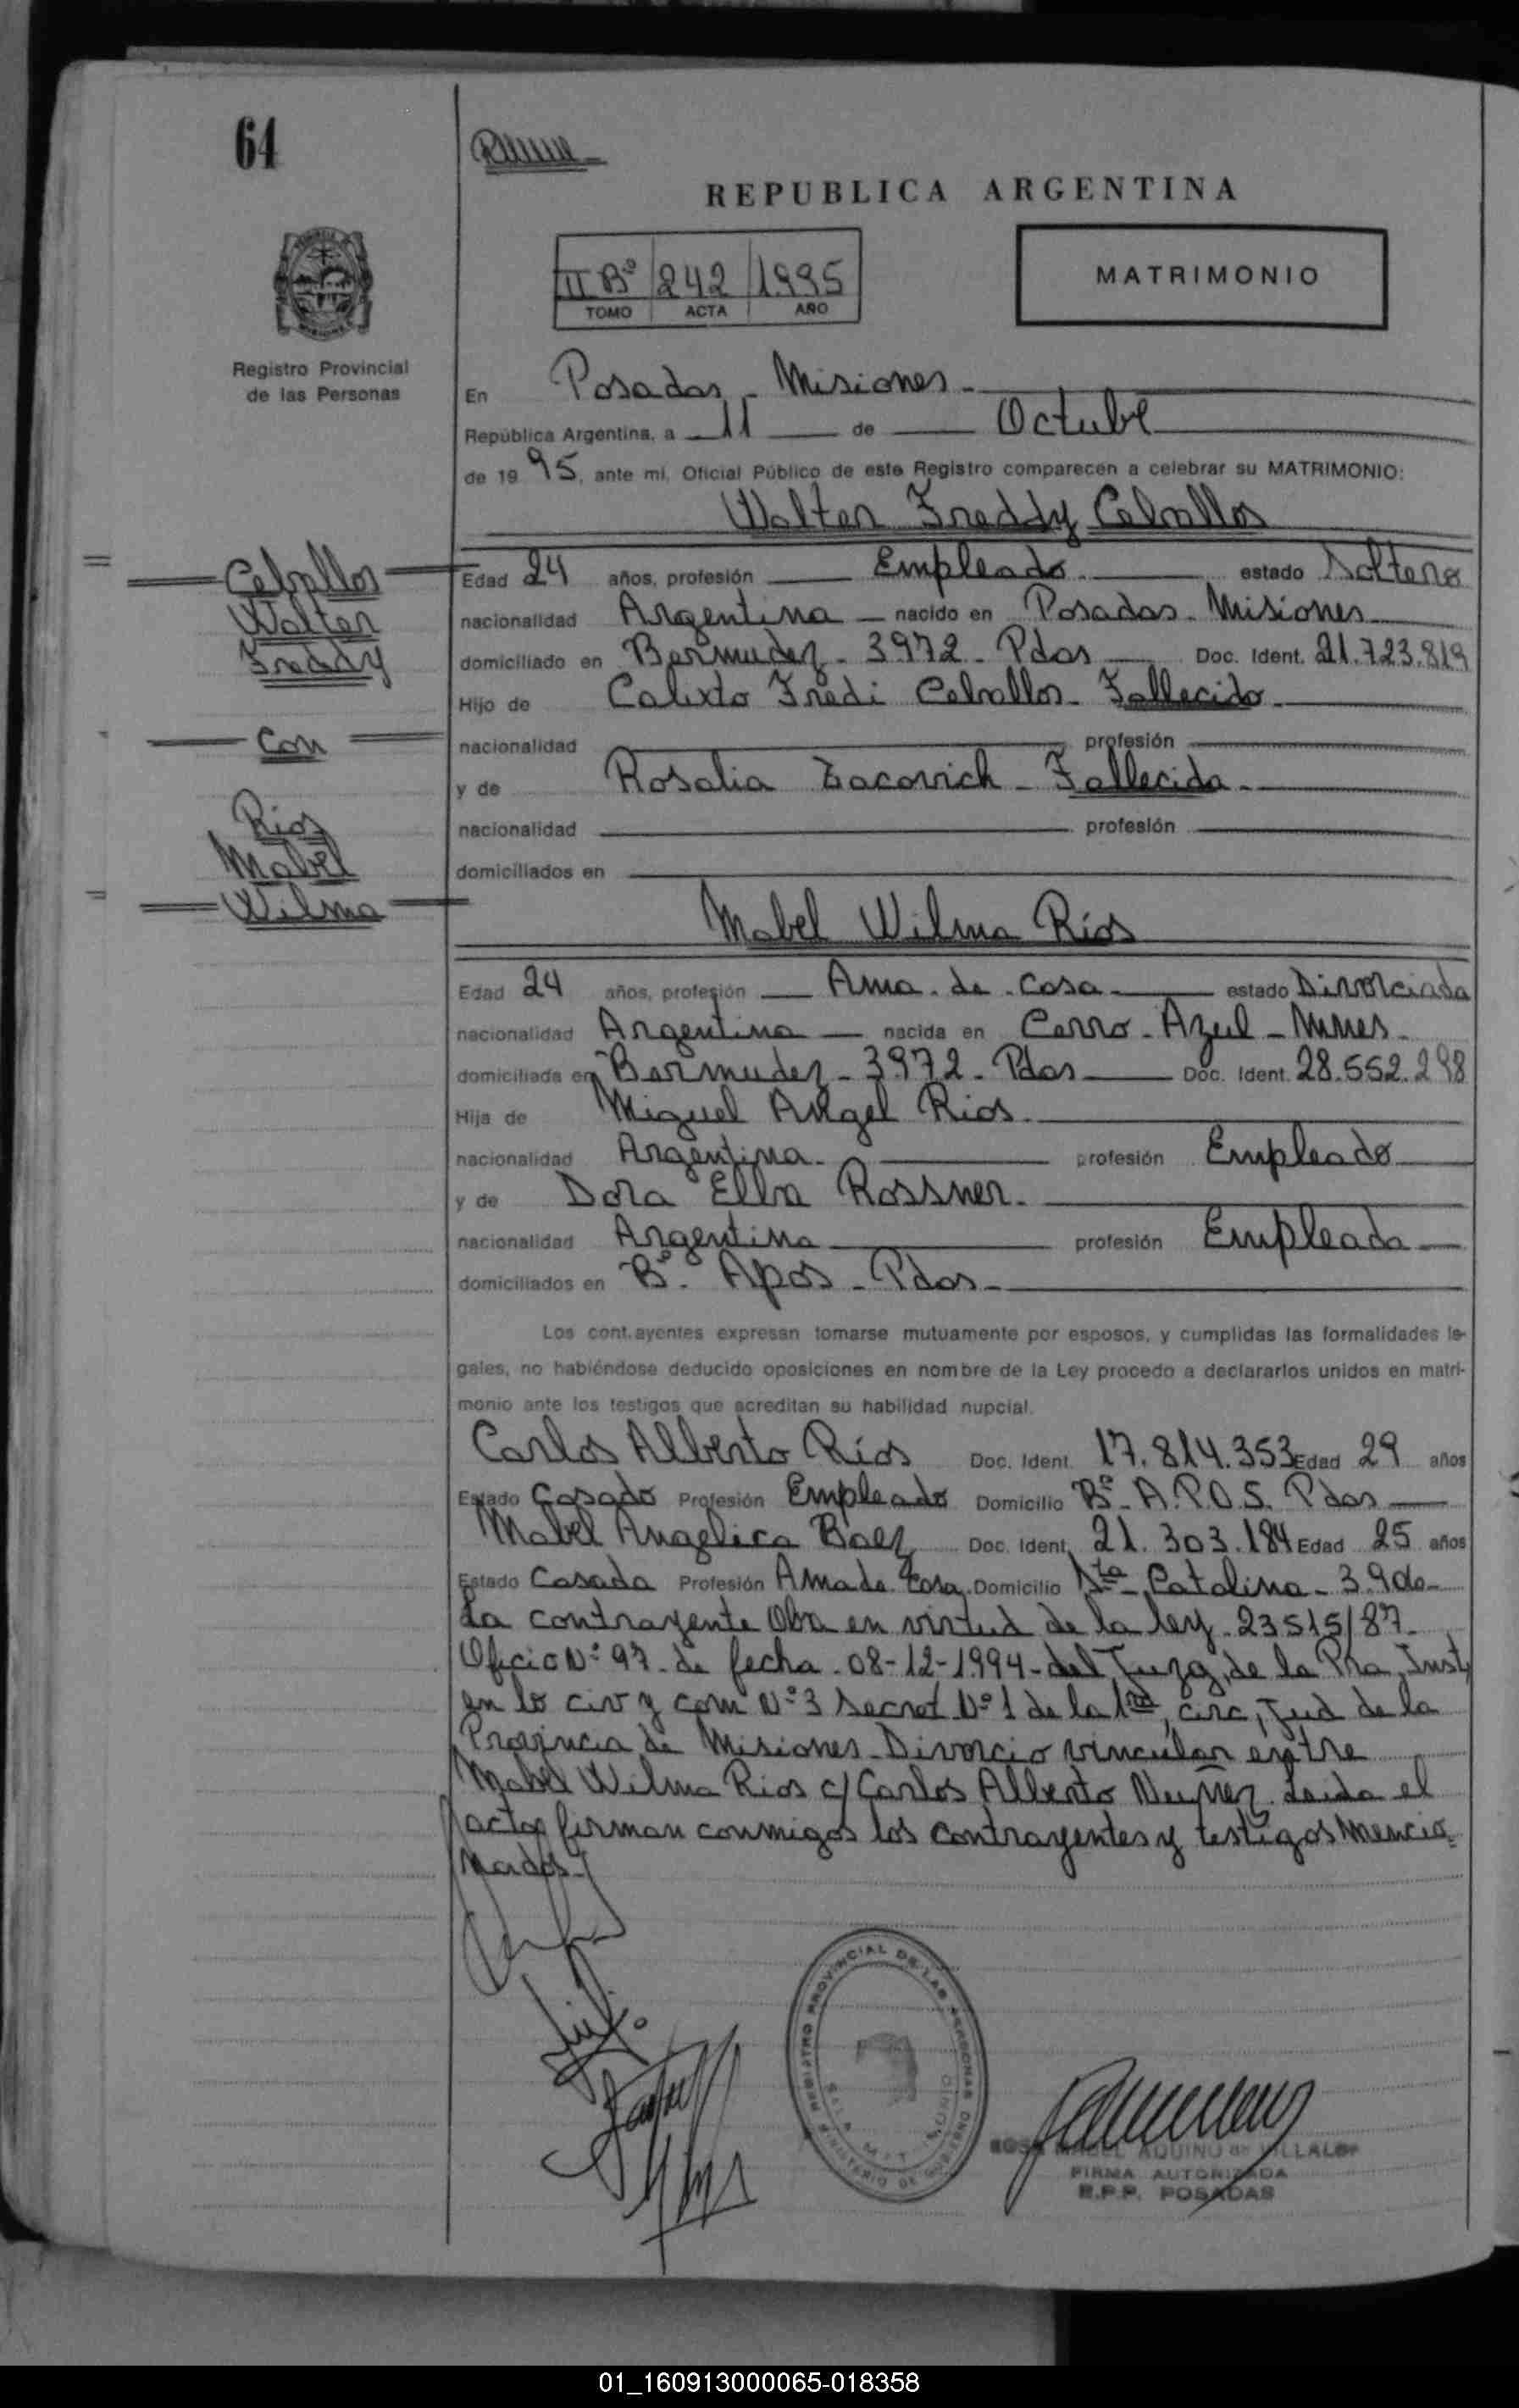 64
REPUBLICA ARGENTINA
II Bº 242 1995
TOMO ACTA AÑO
MATRIMONIO
Registro Provincial
de las Personas
En Posadas - Misiones -
República Argentina, a 11 de Octubre
de 19 95, ante mí, Oficial Público de este Registro comparecen a celebrar su MATRIMONIO:
Walter Freddy Ceballos
Ceballos
Walter
Freddy
Con
Rios
Mabel
Wilma
Edad 24 años, profesión Empleado estado Soltero
nacionalidad Argentina nacido en Posadas - Misiones
domiciliado en Bermudez - 3972 - Pdas Doc. Ident. 21.723.819
Hijo de Calixto Fredi Ceballos - Fallecido -
nacionalidad profesión
y de Rosalia Zacovich - Fallecida -
nacionalidad profesión
domiciliados en
Mabel Wilma Ríos
Edad 24 años, profesión Ama - de - Casa estado Divorciada
nacionalidad Argentina nacida en Cerro - Azul -
domiciliada en Bermudez - 3972 - Pdas Doc. Ident. 28.552.298
Hija de Miguel Angel Rios.
nacionalidad Argentina - profesión Empleado
y de Dora Elba Rossner.
nacionalidad Argentina profesión Empleada
domiciliados en Bº - Apos - Pdas -
Los cont.ayentes expresan tomarse mutuamente por esposos, y cumplidas las formalidades le-
gales, no habiéndose deducido oposiciones en nombre de la Ley procedo a declararlos unidos en matri-
monio ante los testigos que acreditan su habilidad nupcial.
Carlos Alberto Ríos Doc. Ident. 17.814.353 Edad 29 años
Estado Casado Profesión Empleado Domicilio Bº - A.P.O.S. Pdas
Mabel Angelica Baez Doc. Ident. 21.303.184 Edad 25 años
Estado Casada Profesión Ama de Casa Domicilio Sta - Catalina -
La contrayente Obra en virtud de la ley - 23515/87 -
Oficio Nº 97 - de fecha - 08-12-1994 - del Juzg, de la Pra, Inst,
en lo civ y com Nº 3 Secret Nº 1 de la 1ra, circ, Jud de la
Provincia de Misiones - Divorcio vincular entre
Mabel Wilma Rios c/ Carlos Alberto Nuñez - Leida el
acta firman conmigos los contrayentes y testigos mencio
nados -
REGISTRO PROVINCIAL DE LAS PERSONAS
MINISTERIO DE GOBIERNO
AQUINO de VILLALBA
FIRMA AUTORIZADA
R.P.P. POSADAS
01_160913000065-018358